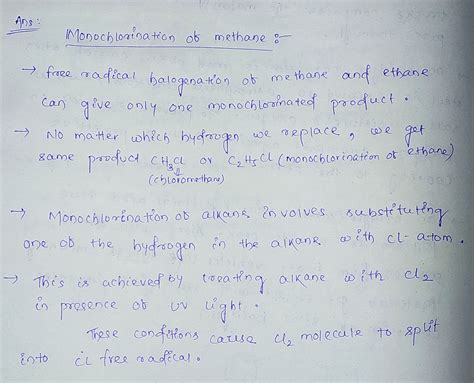 Ans:
Monochlorination of methane :-
→ free radical halogenation of methane and ethane
can give only one monochlorinated product.
→ No matter which hydrogen we replace, we get
same product CH3Cl or C2H5Cl (monochlorination of ethane)
(chloromethane)
→ Monochlorination of alkane involves substituting
one of the hydrogen in the alkane with cl-atom.
→ This is achieved by treating alkane with Cl2
in presence of UV light.
These conditions cause Cl2 molecule to split
into cl free radical.